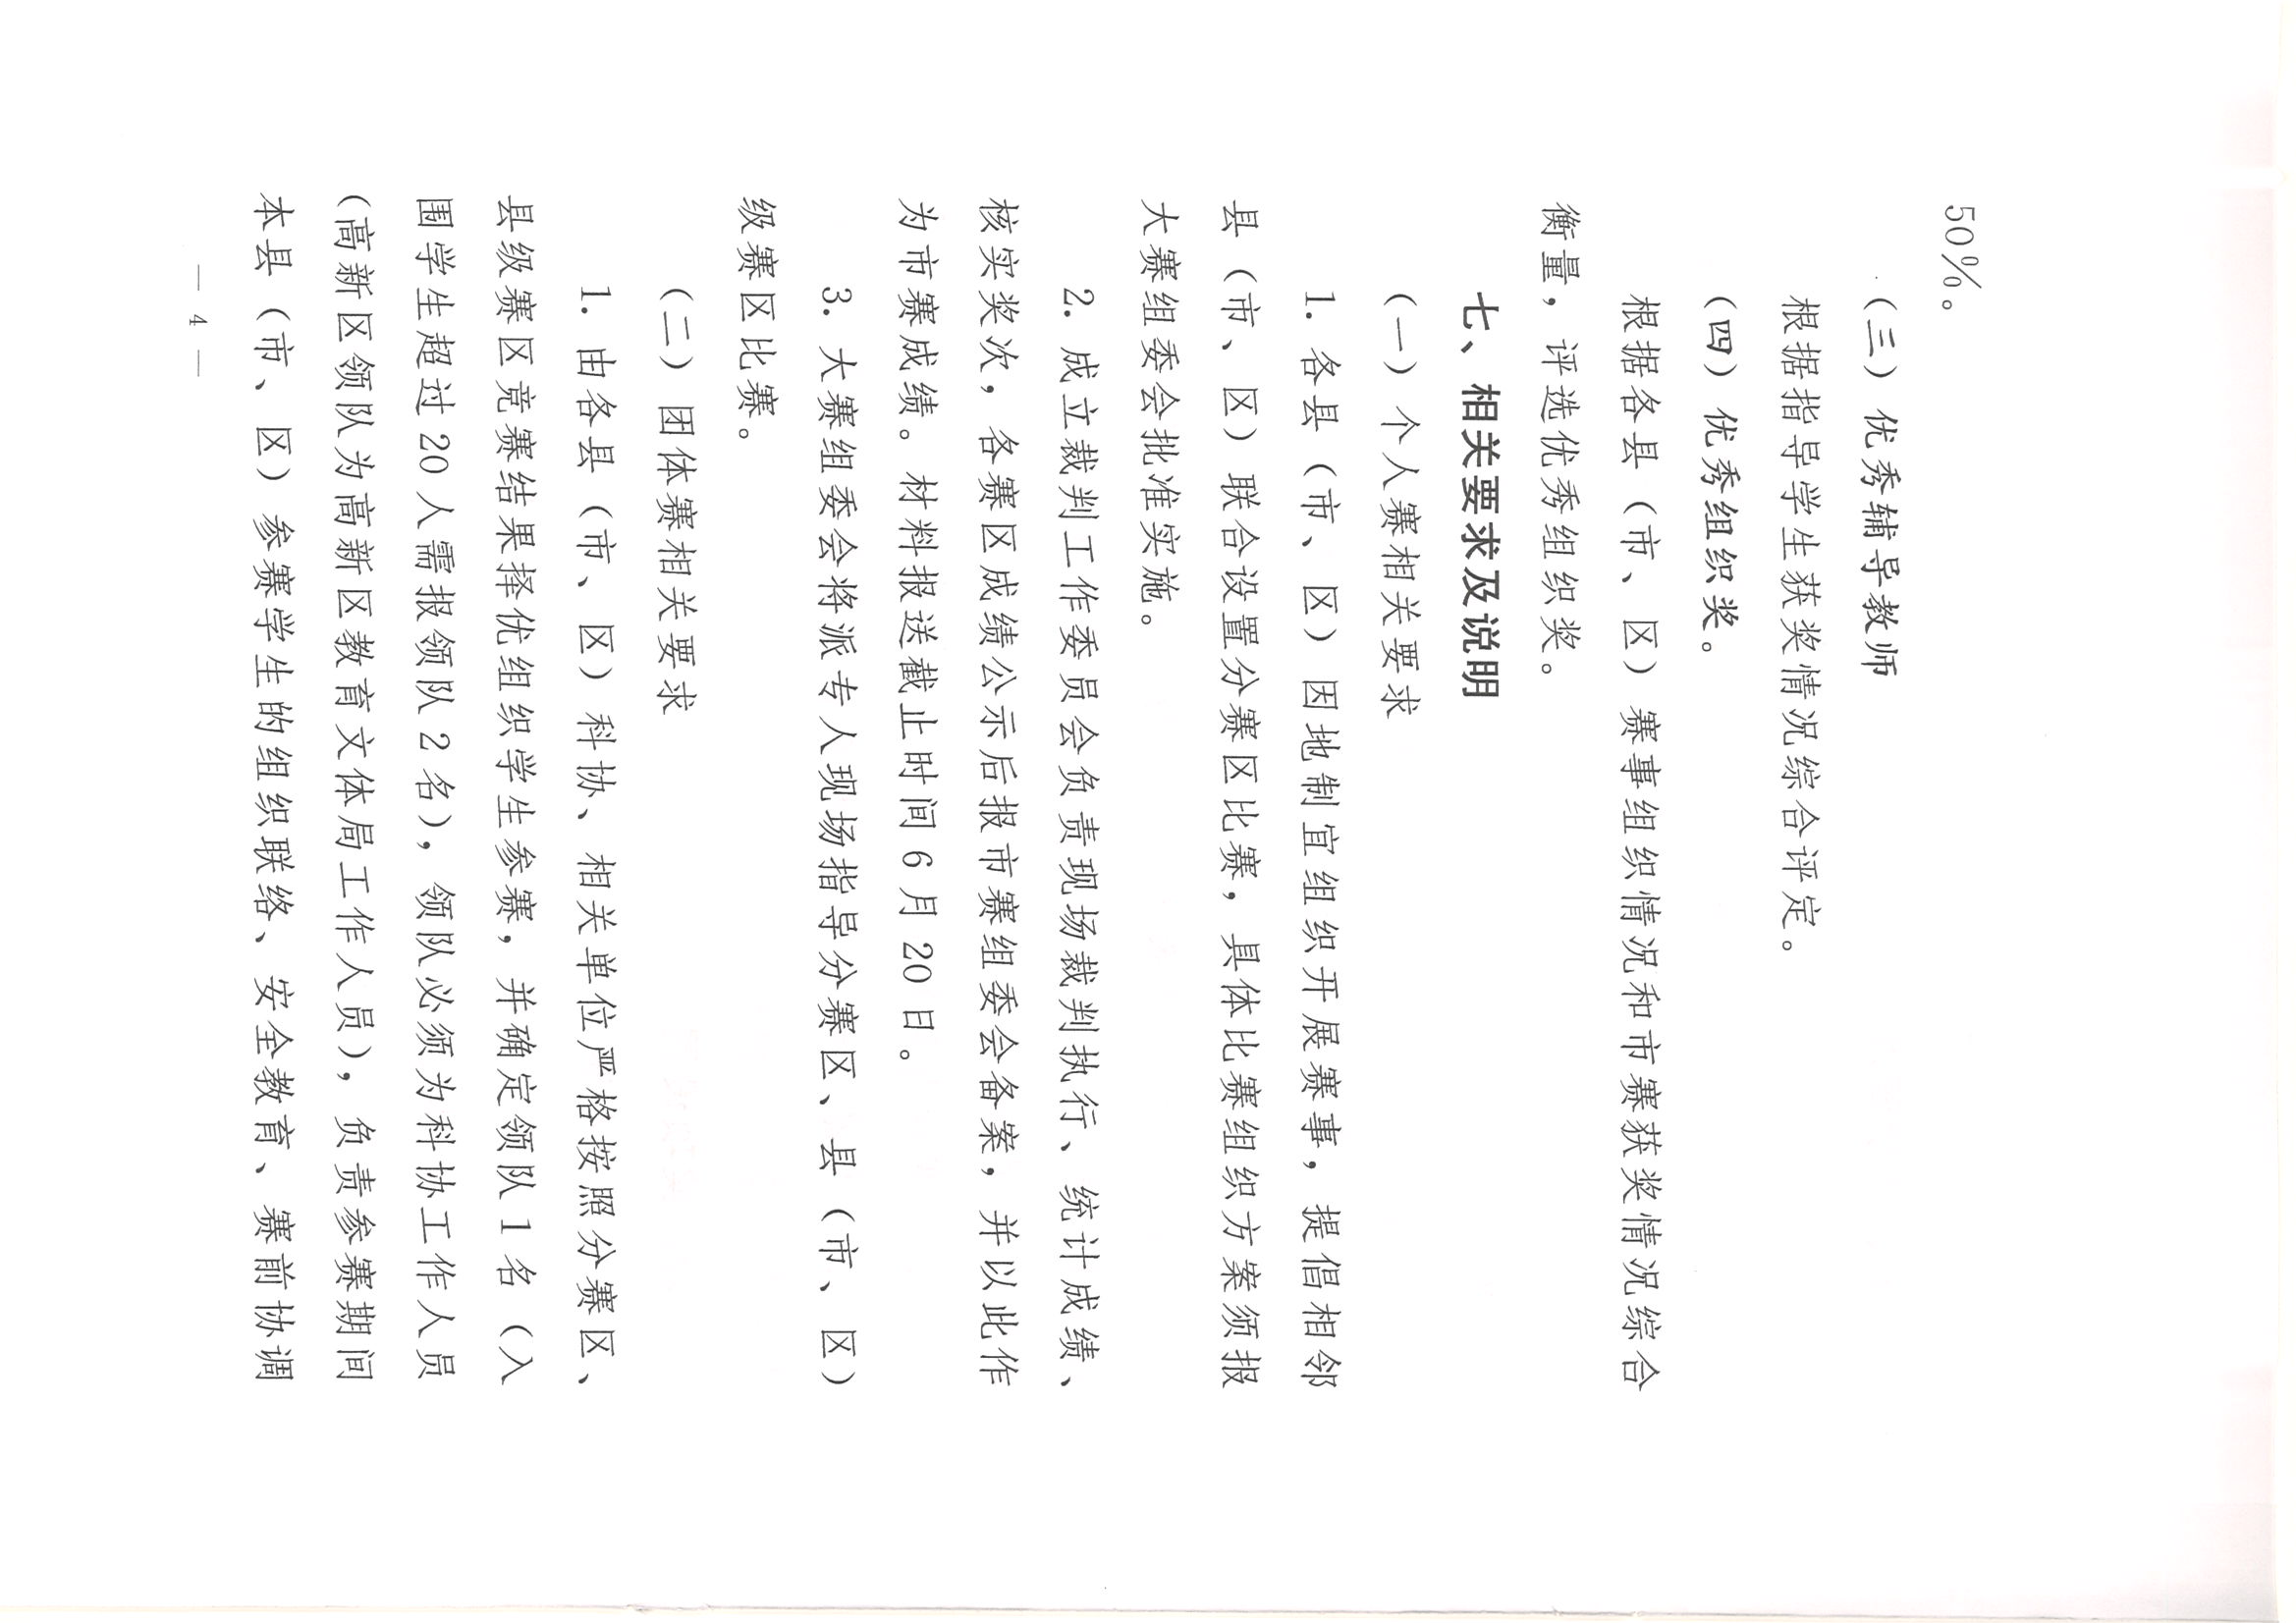 50%。
（三）优秀辅导教师
根据指导学生获奖情况综合评定。
（四）优秀组织奖。
根据各县（市、区）赛事组织情况和市赛获奖情况综合
衡量，评选优秀组织奖。
七、相关要求及说明
（一）个人赛相关要求
1. 各县（市、区）因地制宜组织开展赛事，提倡相邻
县（市、区）联合设置分赛区比赛，具体比赛组织方案须报
大赛组委会批准实施。
2. 成立裁判工作委员会负责现场裁判执行、统计成绩、
核实奖次，各赛区成绩公示后报市赛组委会备案，并以此作
为市赛成绩。材料报送截止时间 6 月 20 日。
3. 大赛组委会将派专人现场指导分赛区、县（市、区）
级赛区比赛。
（二）团体赛相关要求
1. 由各县（市、区）科协、相关单位严格按照分赛区、
县级赛区竞赛结果择优组织学生参赛，并确定领队 1 名（入
围学生超过 20 人需报领队 2 名），领队必须为科协工作人员
（高新区领队为高新区教育文体局工作人员），负责参赛期间
本县（市、区）参赛学生的组织联络、安全教育、赛前协调
— 4 —